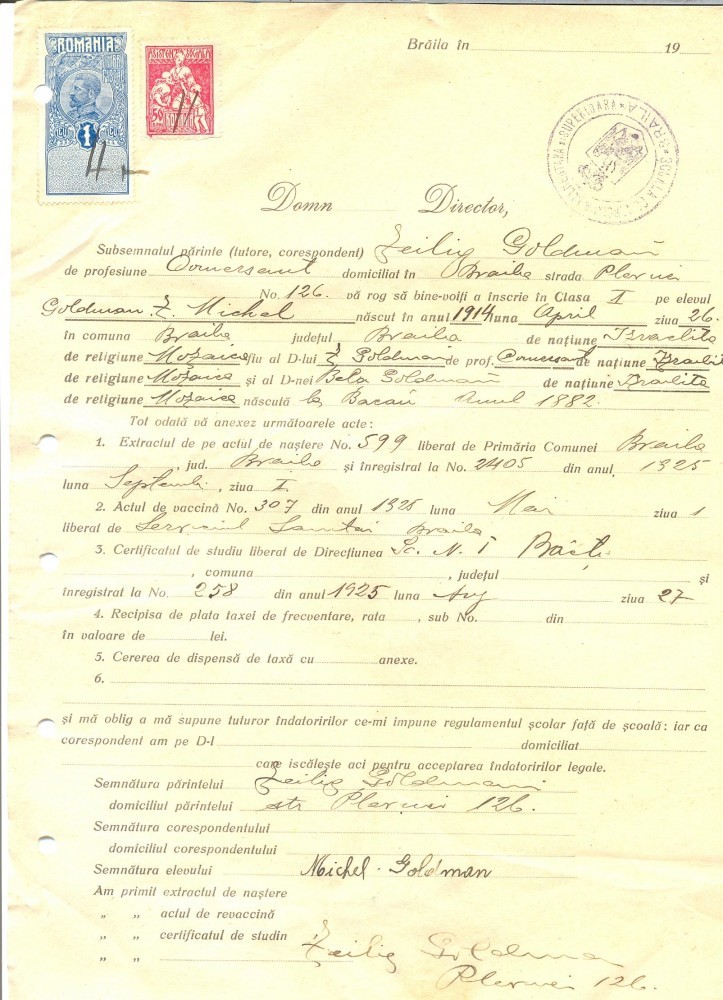 Brăila în 19
ROMÂNIA
1
50
11
11
SCOALA SUPERIOARA BRAILA
Domn Director,
Subsemnatul părinte (tutore, corespondent) Zeilig Goldman
de profesiune Comersant domiciliat în Braila strada Plevnei
No. 126. vă rog să bine-voiți a înscrie în Clasa I pe elevul
Goldman Z. Michel născut în anul 1914 luna April ziua 26.
în comuna Braila județul Braila de națiune Israelita
de religiune Mozaica fiu al D-lui Z Goldman de prof. Comersant de națiune Israelit
de religiune Mozaica și al D-nei Bela Goldman de națiune Israelita
de religiune Mozaica născută la Bacau Anul 1882.
Tot odată vă anexez următoarele acte:
1. Extractul de pe actul de naștere No. 599 liberat de Primăria Comunei Braila
, jud. Braila și înregistrat la No. 2405 din anul, 1925
luna Septemb., ziua I
2. Actul de vaccină No. 307 din anul 1925 luna Mai ziua 1
liberat de Serviciul Sanitar Braila
3. Certificatul de studiu liberat de Direcțiunea Sc. N. 1 Băeți
, comuna , județul și
înregistrat la No. 258 din anul 1925 luna Aug ziua 27
4. Recipisa de plata taxei de frecventare, rata , sub No. din
în valoare de lei.
5. Cererea de dispensă de taxă cu anexe.
6.
și mă oblig a mă supune tuturor îndatoririlor ce-mi impune regulamentul școlar față de școală: iar ca
corespondent am pe D-l domiciliat
care iscălește aci pentru acceptarea îndatoririlor legale.
Semnătura părintelui Zeilig Goldman
domiciliul părintelui str Plevnei 126.
Semnătura corespondentului
domiciliul corespondentului
Semnătura elevului Michel Goldman
Am primit extractul de naștere
„ „ actul de revaccină
„ „ certificatul de studin
„ „ Zeilig Goldman
Plevnei 126.